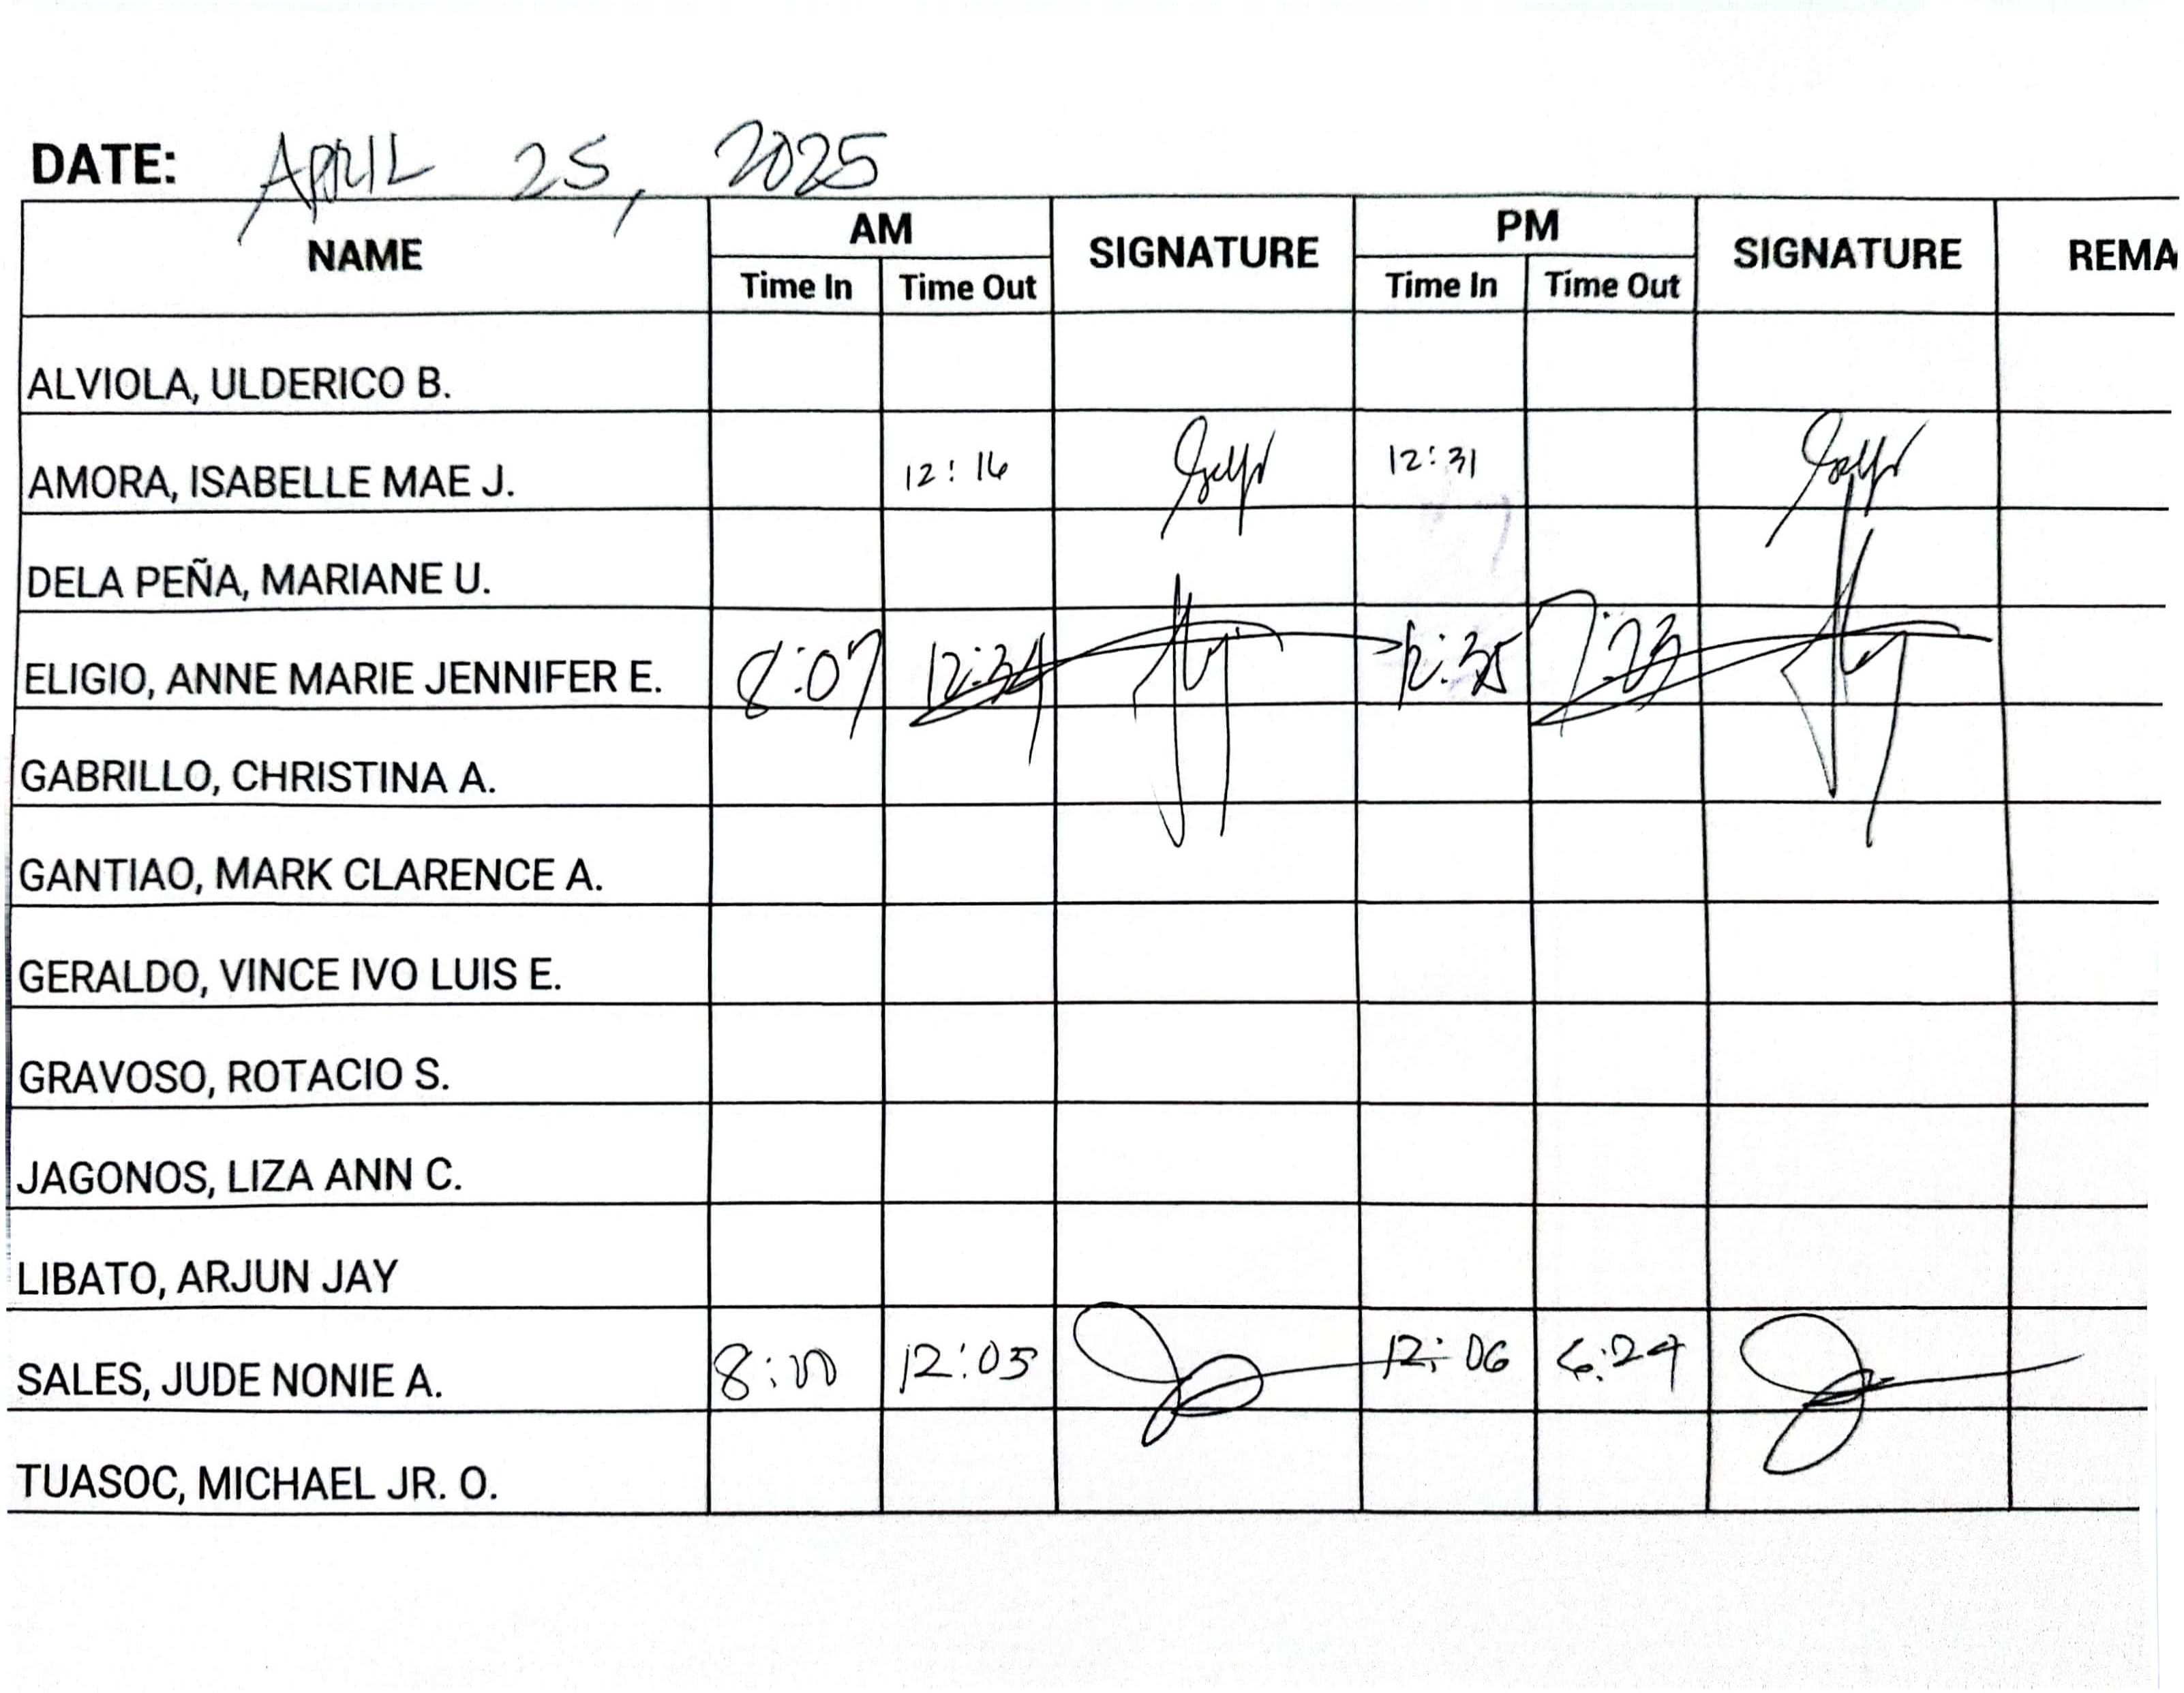 DATE: APRIL 25, 2025
NAME AM SIGNATURE PM SIGNATURE REMA
Time In Time Out Time In Time Out
ALVIOLA, ULDERICO B.
AMORA, ISABELLE MAE J. 12:16 12:31
DELA PEÑA, MARIANE U.
ELIGIO, ANNE MARIE JENNIFER E. 8:07 12:34 12:35 7:23
GABRILLO, CHRISTINA A.
GANTIAO, MARK CLARENCE A.
GERALDO, VINCE IVO LUIS E.
GRAVOSO, ROTACIO S.
JAGONOS, LIZA ANN C.
LIBATO, ARJUN JAY
SALES, JUDE NONIE A. 8:00 12:05 12:06 6:24
TUASOC, MICHAEL JR. O.